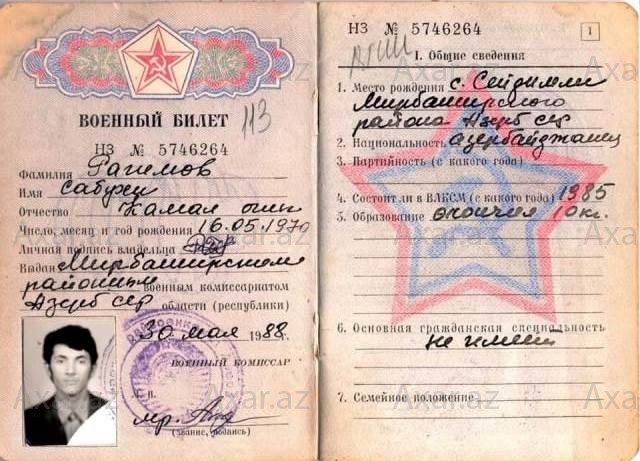 ВОЕННЫЙ БИЛЕТ
113
НЗ № 5746264
Фамилия Рагимов
Имя Сабухи
Отчество Камал оглы
Число, месяц и год рождения 16.05.1970
Личная подпись владельца
Выдан Мирбаширским
районным военным комиссариатом
Азерб ССР области (республики)
30 мая 1988.
ВОЕННЫЙ КОМИССАР
М. П.
(звание, подпись)
НЗ № 5746264
1
I. Общие сведения
1. Место рождения с. Сейдимли
Мирбаширского
района Азерб ССР
2. Национальность азербайджанец
3. Партийность (с какого года)
4. Состоит ли в ВЛКСМ (с какого года) 1985
5. Образование окончил 10 кл.
6. Основная гражданская специальность
не имеет
7. Семейное положение
Axar.az
Axar.az
Axar.az
Axar.az